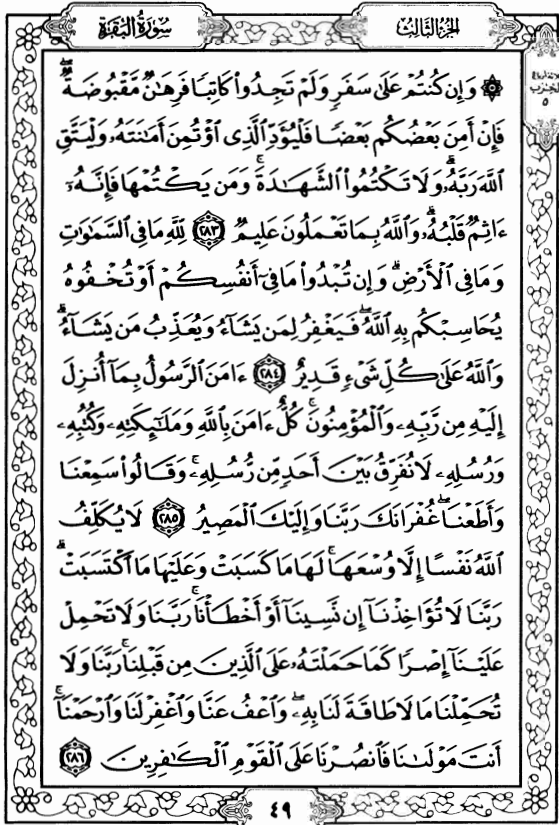 سُورَةُ البَقَرَةِ
الجُزْءُ الثَّالِثُ
الحِزْبِ
٥
۞ وَإِن كُنتُمْ عَلَىٰ سَفَرٍ وَلَمْ تَجِدُوا۟ كَاتِبًا فَرِهَٰنٌ مَّقْبُوضَةٌ ۖ
فَإِنْ أَمِنَ بَعْضُكُم بَعْضًا فَلْيُؤَدِّ الَّذِى اؤْتُمِنَ أَمَٰنَتَهُۥ وَلْيَتَّقِ
اللَّهَ رَبَّهُۥ ۗ وَلَا تَكْتُمُوا۟ الشَّهَٰدَةَ ۚ وَمَن يَكْتُمْهَا فَإِنَّهُۥٓ
ءَاثِمٌ قَلْبُهُۥ ۗ وَاللَّهُ بِمَا تَعْمَلُونَ عَلِيمٌ ٢٨٣ لِّلَّهِ مَا فِى السَّمَٰوَٰتِ
وَمَا فِى الْأَرْضِ ۗ وَإِن تُبْدُوا۟ مَا فِىٓ أَنفُسِكُمْ أَوْ تُخْفُوهُ
يُحَاسِبْكُم بِهِ اللَّهُ ۖ فَيَغْفِرُ لِمَن يَشَآءُ وَيُعَذِّبُ مَن يَشَآءُ ۗ
وَاللَّهُ عَلَىٰ كُلِّ شَىْءٍ قَدِيرٌ ٢٨٤ ءَامَنَ الرَّسُولُ بِمَآ أُنزِلَ
إِلَيْهِ مِن رَّبِّهِۦ وَالْمُؤْمِنُونَ ۚ كُلٌّ ءَامَنَ بِاللَّهِ وَمَلَٰٓئِكَتِهِۦ وَكُتُبِهِۦ
وَرُسُلِهِۦ لَا نُفَرِّقُ بَيْنَ أَحَدٍ مِّن رُّسُلِهِۦ ۚ وَقَالُوا۟ سَمِعْنَا
وَأَطَعْنَا ۖ غُفْرَانَكَ رَبَّنَا وَإِلَيْكَ الْمَصِيرُ ٢٨٥ لَا يُكَلِّفُ
اللَّهُ نَفْسًا إِلَّا وُسْعَهَا ۚ لَهَا مَا كَسَبَتْ وَعَلَيْهَا مَا اكْتَسَبَتْ ۗ
رَبَّنَا لَا تُؤَاخِذْنَآ إِن نَّسِينَآ أَوْ أَخْطَأْنَا ۚ رَبَّنَا وَلَا تَحْمِلْ
عَلَيْنَآ إِصْرًا كَمَا حَمَلْتَهُۥ عَلَى الَّذِينَ مِن قَبْلِنَا ۚ رَبَّنَا وَلَا
تُحَمِّلْنَا مَا لَا طَاقَةَ لَنَا بِهِۦ ۖ وَاعْفُ عَنَّا وَاغْفِرْ لَنَا وَارْحَمْنَآ ۚ
أَنتَ مَوْلَىٰنَا فَانصُرْنَا عَلَى الْقَوْمِ الْكَٰفِرِينَ ٢٨٦
٤٩